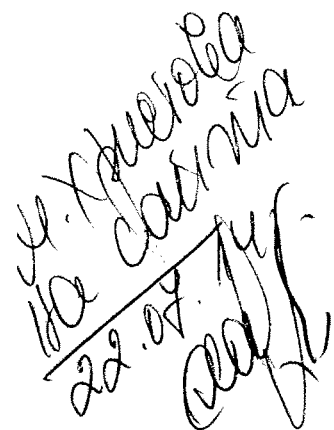 Христова
на сайта
22.07.14г.